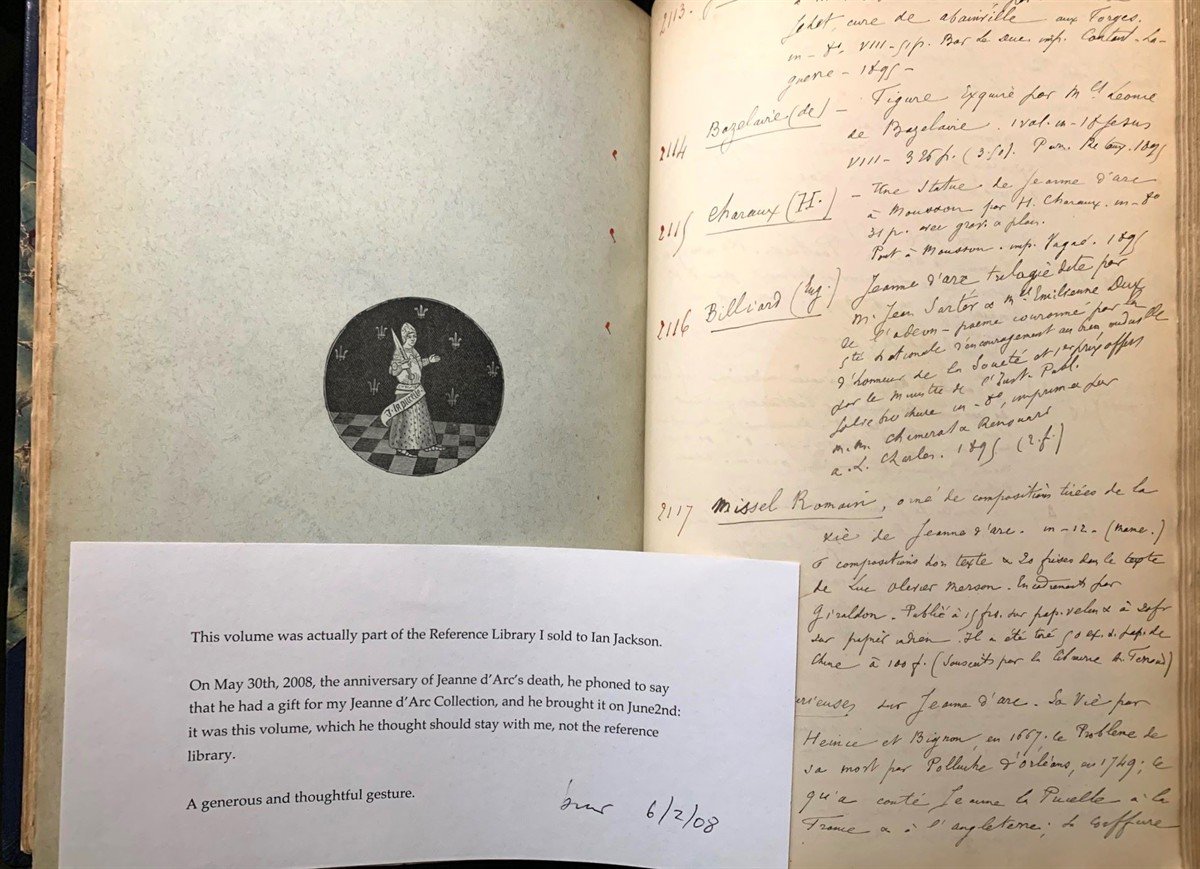 J. la pucelle
This volume was actually part of the Reference Library I sold to Ian Jackson.
On May 30th, 2008, the anniversary of Jeanne d'Arc's death, he phoned to say
that he had a gift for my Jeanne d'Arc Collection, and he brought it on June2nd:
it was this volume, which he thought should stay with me, not the reference
library.
A generous and thoughtful gesture.
6/2/08
2113.
cure de abainville aux Forges.
in-8o. VIII-51p. Bar le Duc. imp. Contant-La-
guerre - 1895 -
2114 Bazelaire (de) - Figure Exquise par Mlle Léonie
de Bazelaire. 1 vol. in-18 Jesus
VIII- 326 p. (3.50). Paris. Retaux. 1895
2115 Charaux (H.) - Une Statue de Jeanne d'arc
à Mousson par H. Charaux. in-8o
31 p. avec grav. & plan.
Pont à Mousson. imp. Vagné. 1895
2116 Billiard (Eug.) Jeanne d'arc trilogie dite par
M. Jean Sartér & Mlle Emilienne Dux
de l'odéon - poème couronné par la
sté nationale d'encouragement au bien médaille
d'honneur de la Société et 1er prix offert
par le ministre de l'Inst. Publ.
Jolie brochure in-8o, imprimée par
M.M. Chamerot & Renouard
1895 (2.f.)
2117 Missel Romain, orné de compositions tirées de la
vie de Jeanne d'arc. in-12. (Mame.)
compositions hors texte & 20 frises dans le texte
de Luc Olivier Merson. Encadrements par
Giraldon. Publié à 15 frs. sur pap. velin &
sur papier indien. Il a été tiré 50 ex. s. pap. de
Chine à 100 f. (Souscrits par la librairie
urieuses sur Jeanne d'arc. Sa Vie par
Heince et Bignon en 1667. le Problème de
sa mort par Polluche d'Orléans, en 1749; ce
qu'a conté Jeanne la Pucelle à la
France & à l'angleterre; la coiffure